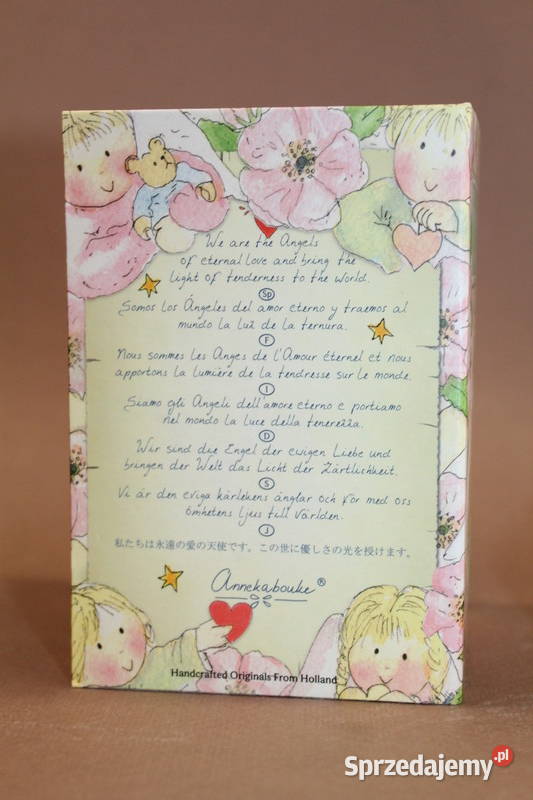 We are the Angels
of eternal love and bring the
light of tenderness to the world.
Sp
Somos los Ángeles del amor eterno y traemos al
mundo la luz de la ternura.
F
Nous sommes les Anges de l'Amour éternel et nous
apportons la lumière de la tendresse sur le monde.
I
Siamo gli Angeli dell'amore eterno e portiamo
nel mondo la luce della tenerezza.
D
Wir sind die Engel der ewigen Liebe und
bringen der Welt das Licht der Zärtlichkeit.
S
Vi är den eviga kärlekens änglar och för med oss
ömhetens ljus till världen.
J
私たちは永遠の愛の天使です。この世に優しさの光を授けます。
Annekabouke ®
Handcrafted Originals From Holland
Sprzedajemy.pl